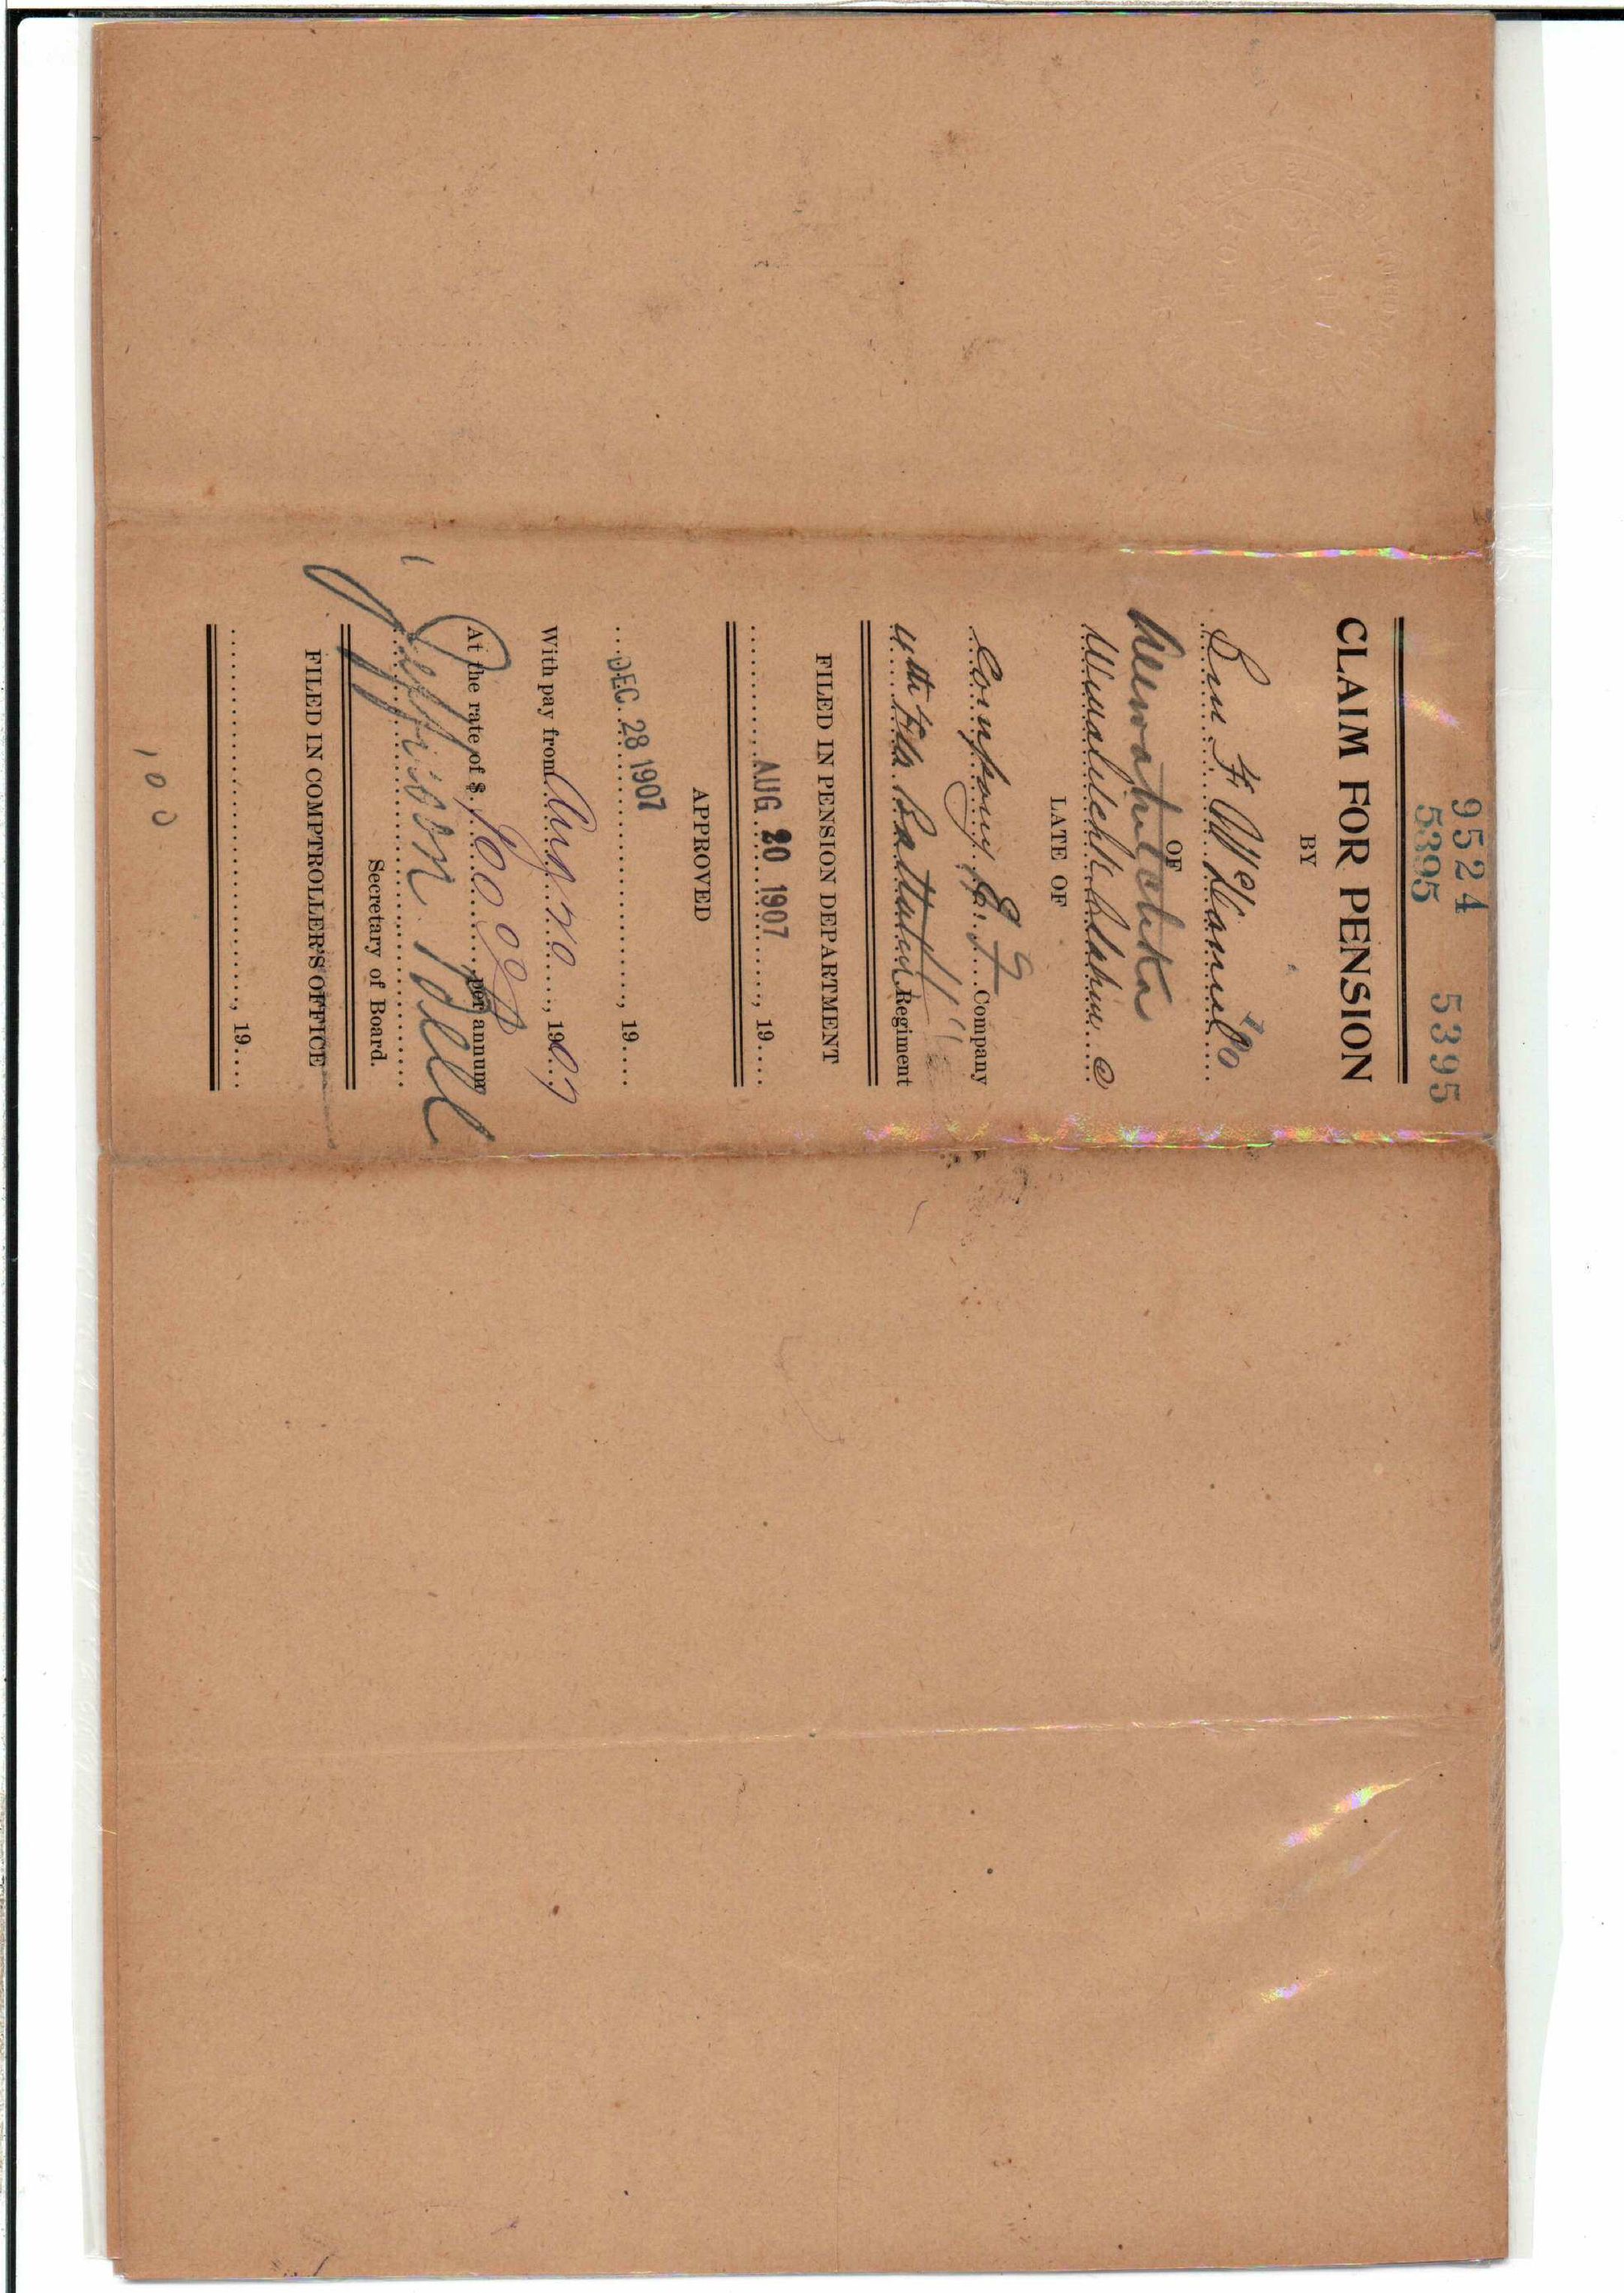 9524 5395
5395
CLAIM FOR PENSION
BY
Ben F McDaniel
OF
Wewahitchka
LATE OF
Company E. F Company
4th Fla Battalion Regiment
FILED IN PENSION DEPARTMENT
AUG 20 1907, 19....
APPROVED
DEC. 28 1907, 19....
With pay from Aug 20, 1907
At the rate of $ 100 00 per annum
Jefferson B Bell
Secretary of Board.
FILED IN COMPTROLLER'S OFFICE
, 19....
100